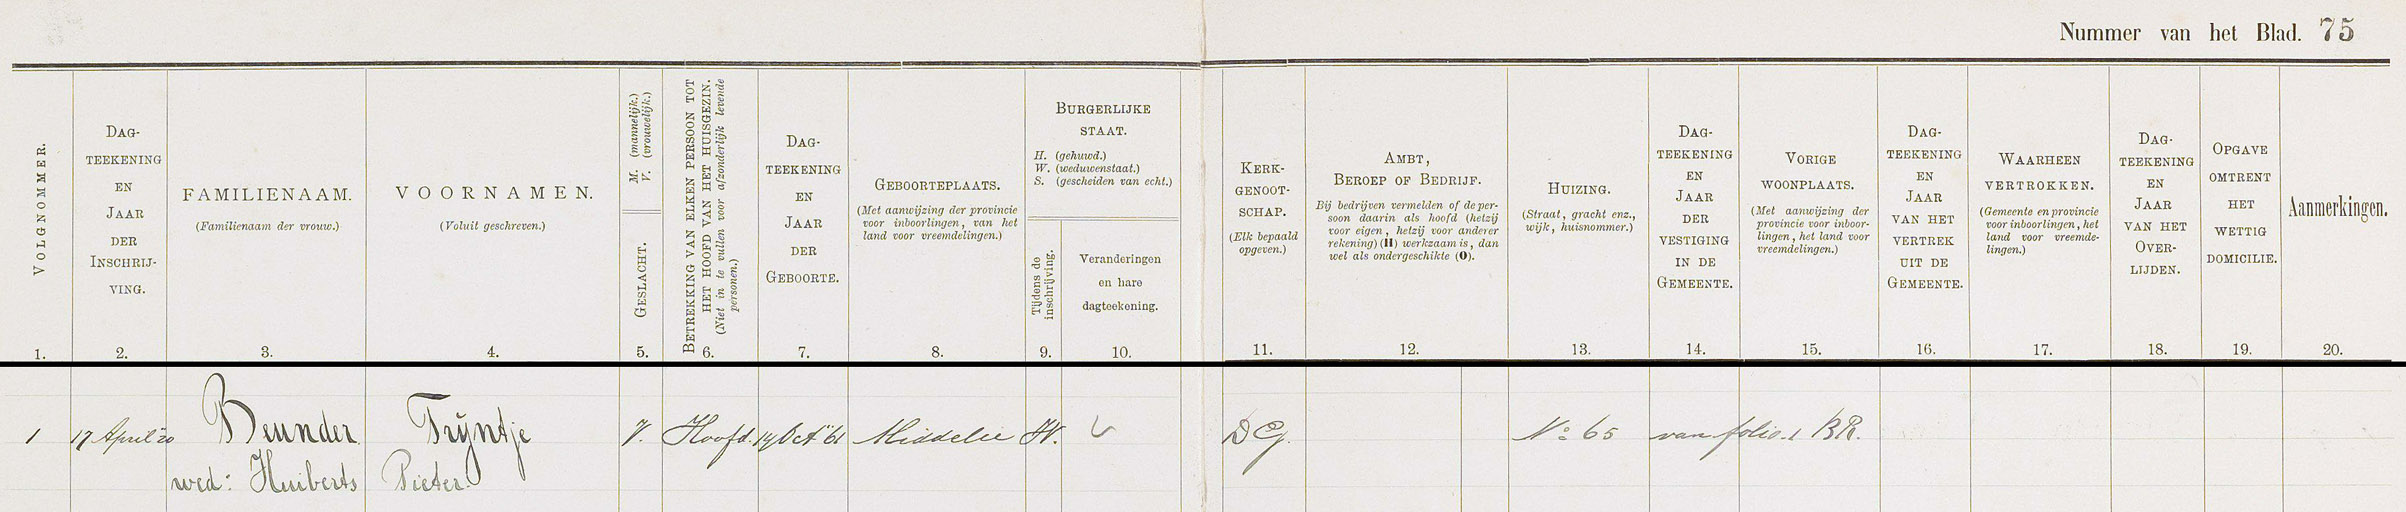 Nummer van het Blad. 75
VOLGNOMMER.
1.
DAG-
TEEKENING
EN
JAAR
DER
INSCHRIJ-
VING.
2.
FAMILIENAAM.
(Familienaam der vrouw.)
3.
VOORNAMEN.
(Voluit geschreven.)
4.
M. (mannelijk.)
V. (vrouwelijk.)
GESLACHT.
5.
BETREKKING VAN ELKEN PERSOON TOT
HET HOOFD VAN HET HUISGEZIN.
(Niet in te vullen voor afzonderlijk levende
personen.)
6.
DAG-
TEEKENING
EN
JAAR
DER
GEBOORTE.
7.
GEBOORTEPLAATS.
(Met aanwijzing der provincie
voor inboorlingen, van het
land voor vreemdelingen.)
8.
BURGERLIJKE
STAAT.
H. (gehuwd.)
W. (weduwenstaat.)
S. (gescheiden van echt.)
Tijdens de
inschrijving.
9.
Veranderingen
en hare
dagteekening.
10.
KERK-
GENOOT-
SCHAP.
(Elk bepaald
opgeven.)
11.
AMBT,
BEROEP OF BEDRIJF.
Bij bedrijven vermelden of de per-
soon daarin als hoofd (hetzij
voor eigen, hetzij voor anderer
rekening) (H) werkzaam is, dan
wel als ondergeschikte (O).
12.
HUIZING.
(Straat, gracht enz.,
wijk, huisnommer.)
13.
DAG-
TEEKENING
EN
JAAR
DER
VESTIGING
IN DE
GEMEENTE.
14.
VORIGE
WOONPLAATS.
(Met aanwijzing der
provincie voor inboor-
lingen, het land voor
vreemdelingen.)
15.
DAG-
TEEKENING
EN
JAAR
VAN HET
VERTREK
UIT DE
GEMEENTE.
16.
WAARHEEN
VERTROKKEN.
(Gemeente en provincie
voor inboorlingen, het
land voor vreemde-
lingen.)
17.
DAG-
TEEKENING
EN
JAAR
VAN HET
OVER-
LIJDEN.
18.
OPGAVE
OMTRENT
HET
WETTIG
DOMICILIE.
19.
Aanmerkingen.
20.
1 17 April '20 Beunder Trijntje V. Hoofd. 14 Oct '61 Middelie W. DG. No 65 van folio 1 BR.
wed: Huiberts Pieter.